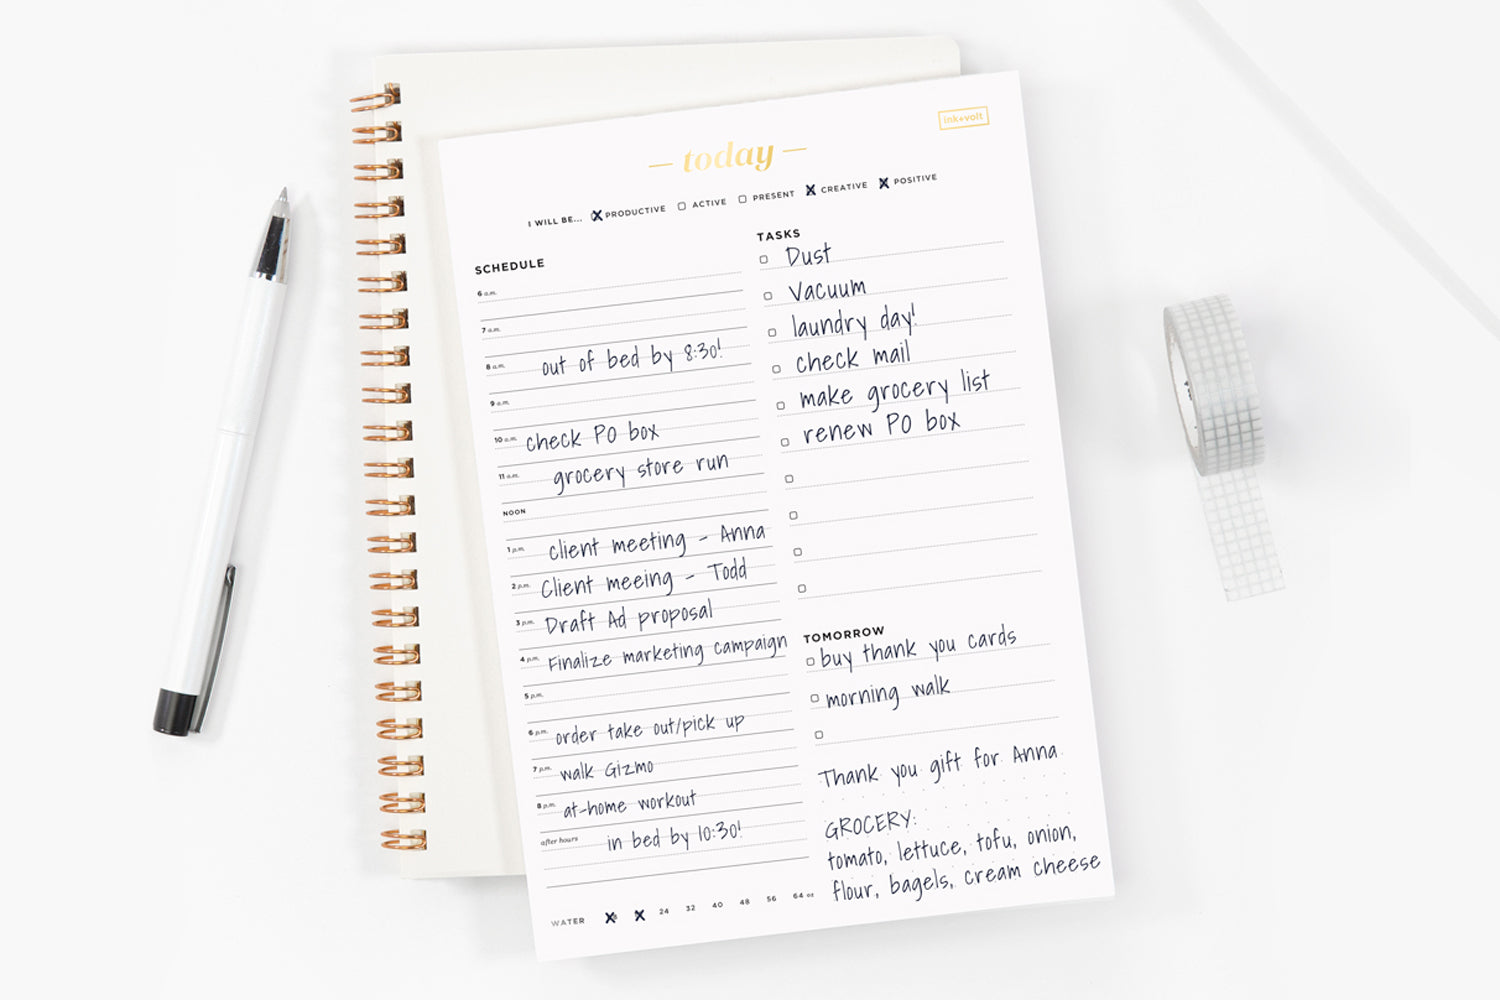 ink+volt
today
I WILL BE... PRODUCTIVE ACTIVE PRESENT CREATIVE POSITIVE
SCHEDULE
6 a.m.
7 a.m.
8 a.m. out of bed by 8:30!
9 a.m.
10 a.m. check PO box
11 a.m. grocery store run
NOON
1 p.m. client meeting - Anna
2 p.m. Client meeing - Todd
3 p.m. Draft Ad proposal
4 p.m. Finalize marketing campaign
5 p.m.
6 p.m. order take out/pick up
7 p.m. walk Gizmo
8 p.m. at-home workout
after hours in bed by 10:30!
WATER 24 32 40 48 56 64 oz
TASKS
Dust
Vacuum
laundry day!
check mail
make grocery list
renew PO box
TOMORROW
buy thank you cards
morning walk
Thank you gift for Anna
GROCERY:
tomato, lettuce, tofu, onion,
flour, bagels, cream cheese